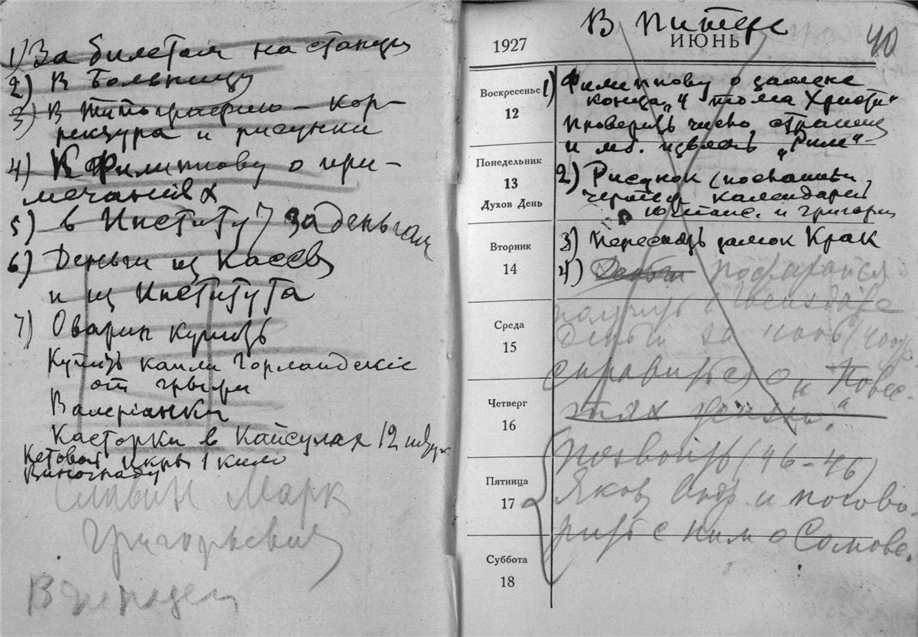 1) За билетом на станцию
2) В больницу
3) В типографию – кор-
ректура и рисунки
4) К Филиппову о при-
мечаниях
5) в Институт за деньгами
6) Деньги из Кассы
и из Института
7) Оварин купить
Купить капли Горландскіе
от грыжи
Валеріанки
Касторки в капсулах 12 штук
Кетовой икры 1 кило
Винограду
Славин Марк
Григорьевич
В
В Питере
40
1927 ИЮНЬ
Воскресенье
12
1) Филиппову о замене
конца „4 тома Христа“
Проверить число страниц
и мб. „Рим“ –
Понедельник
13
Духов День
2) Рисунок (
календарей
и Григори
Вторник
14
3) замок Крак
4) Деньги постарайся
получить в
Среда
15
деньги за
справиться о „Повес-
Четверг
16
тях
позвонить (46-46)
Пятница
17
Яков и погово-
рить с ним о Сомове.
Суббота
18